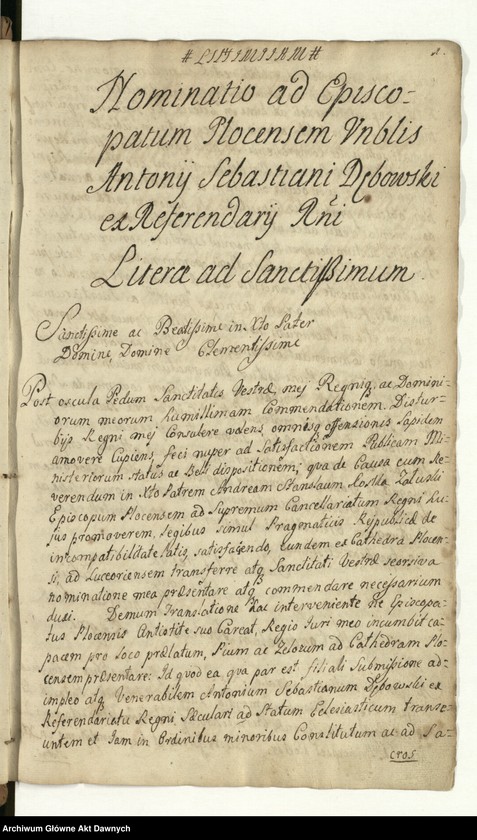 Nominatio ad Episco-
patum Plocensem Vnblis
Antonij Sebastiani Dębowski
ex Referendarij Rñi
Literæ ad Sanctissimum
Sanctissime ac Beatissime in Xto Pater
Domine, Domine Clementissime
Post oscula Pedum Sanctitatis Vestræ, mej Regniq, ac Domini-
orum meorum humillimam Commendationem. Distur-
bijs Regni mej Consulere volens, omnesq offensionis Lapidem
amovere Cupiens, feci nuper ad Satisfactionem Publicam Mi-
nisteriorum status ac Belli dispositionem; qua de Causa cum Re-
verendum in Xto Patrem Andream Stanislaum Kostka Zaluski
Episcopum Plocensem ad Supremum Cancellariatum Regni hu-
jus promoverem, Legibus simul Pragmaticis Reipublicæ de
incompatibilitate latis, satisfaciendo, eundem ex Cathedra Plocen-
si, ad Luceoriensem transferre atq Sanctitati Vestræ seorsiva
nominatione mea præsentare atq commendare necessarium
duxi. Demum Translatione hac interveniente ne Episcopa-
tus Plocensis Antistite suo Careat, Regio Juri meo incumbit ca-
pacem pro Loco prælatum, Pium ac Zelosum ad Cathedram Plo-
censem præsentare: Id quod ea, qua par est filiali Submissione ad-
impleo atq Venerabilem Antonium Sebastianum Dębowski ex
Referendariatu Regni Sæculari ad Statum Eclesiasticum transe-
untem et Jam in Ordinibus minoribus Constitutum ac ad Sa-
cros
Archiwum Główne Akt Dawnych